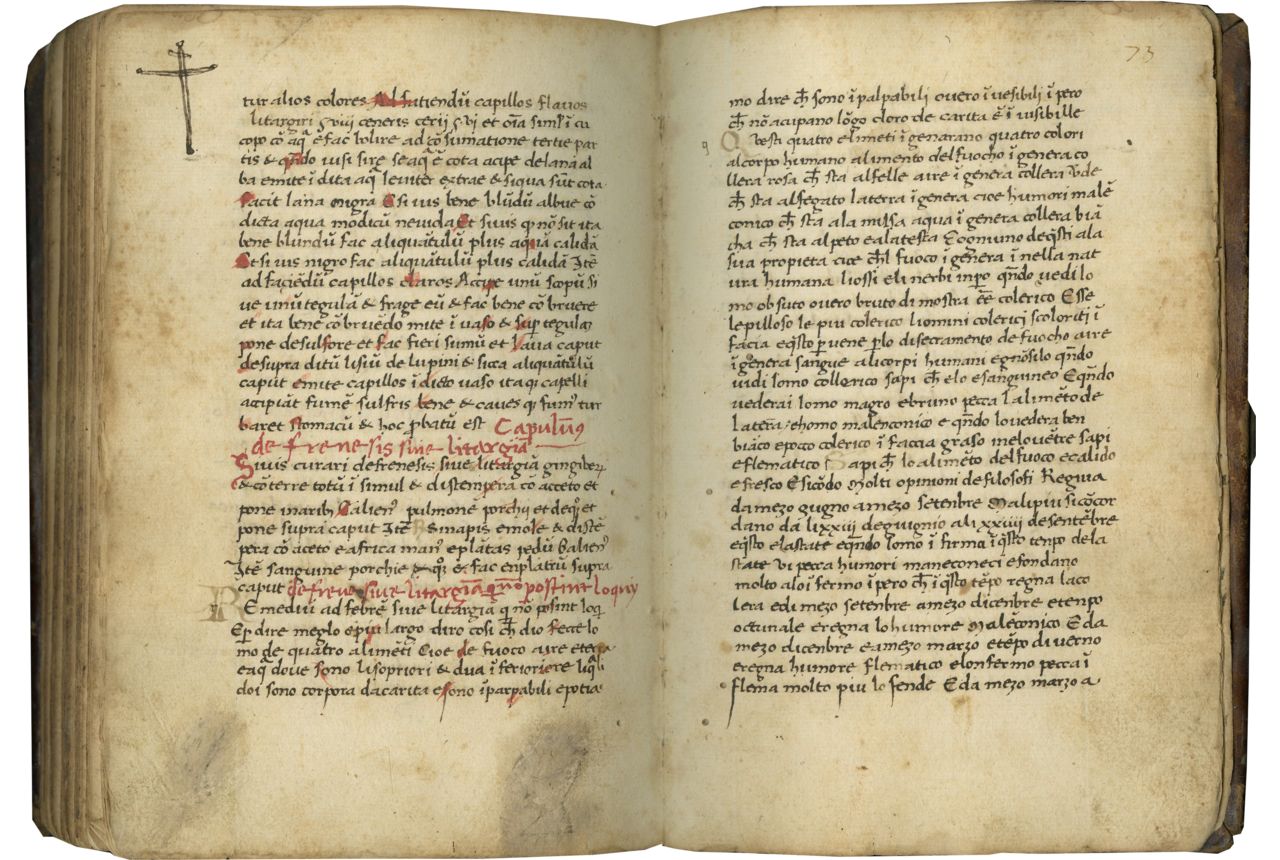 tur alios colores Ad futiendū capillos flavos
litargiri ʒ viii ceneris cerij ʒ vj et oīa siml ī cu
copo cō aq̄ e fac bolire ad cōsumatione tertie par
tis & qn̄do visi sire seaq̄ ē cota acipe delana al
ba emite ī dita aq̄ leviter extrae & siqua sūt cota
facit lana nigra Et si vis bene blūdū albue cō
dicta aqua modicū nevida Et si vis q nō sit ita
bene blundū fac aliquātulū plus aquā calidā
Et si vis nigro fac aliquātulū plus calidā Itē
ad faciēdū capillos claros Accipe unū scopū si
ve unū tegulā & frage eū & fac bene cōbruere
et ita bene cōbruēdo mite ī vaso & sup tegulaz
pone desulfore et fac fieri fumū et lava caput
desupra ditū lisiū de lupini & sicca aliquātulū
caput emite capillos ī dicto vaso ita qi capelli
accipiāt fumē sulfris bene & caves qi fum̄ tur
baret stomacū & hoc p̱batū est Capulūs
de frenesis sive litargiā
Si vis curari defrenesis sive litargiā gingiber
& cōterre totū ī simul & distempera cō acceto et
pone inarib Calien pulmone porchi et deqi et
pone supra caput Itē Sinapis emole & distē
pera cō aceto e africa man̄ e plātas pedū Calien
Itē sanguine porchie & qi e fac enplatrū supra
caput de freno sive litargiā q̄ nō postint loquj
Remediū ad febrē sive litargiā q̄ nō posint loq
E p̱ dire meglo e piu largo diro cosi ch̄ dio fece lo
mo de quatro alimēti Cioe de fuoco aire eterra
eaq̄ dove sono li sopriori & dua īferioriere liq̄li
doi sono corpora dacarita e sono īparpabili e potia
73
mo dire ch̄ sono īpalpabili overo īvesibili ī pero
ch̄ nō acupano lōgo cloro de carita ē īvisibille
Qvesti quatro elimēti īgenarano quatro colori
alcorpo humano alimento del fuocho īgenera co
llera rosa ch̄ sta alfelle aire īgenera collera v̄de
ch̄ sta alfegato laterra īgenera cice humori malē
conico ch̄ sta ala milsa aqua īgenera collera biā
cha ch̄ sta alpeto ealatesta Eogniuno deq̄sti ala
sua propieta cice ch̄l fuoco īgenera ī nella nat
ura humana liossi eli nerbi īnpo qn̄do vedi lo
mo obsuto overo bruto di mostra ēē colerico Esse
le pilloso le piu colerico liomini colerici scoloriti ī
facia eq̄sto p̱ vene p̱lo disecramento de fuocho aire
īgenera sangue alicorpi humani egnōsilo qn̄do
vidi lomo collorico sapi ch̄ elo esanguineo Eqn̄do
vederai lomo magro ebruno pecca lalimēto de
latera ehomo malenconico e qn̄do lovedera ben
biāco epocco colerico ī faccia graso melo vētre sapi
e flematico Sapi ch̄ lo alimēto del fuoco ecalido
efresco Esicōdo Molti opinioni de filosofi Regnia
da mezo gugno amezo setenbre Malipiu sicōcor
dano da li xxiiij degiugnio ali xxiiij desentēbre
eq̄sto elastate eqn̄do lomo ī firma īq̄sto tenpo dela
state vi pecca humori maneconeci efondano
molto aloi fermo ī pero ch̄ ī q̄sto tēpo regna laco
lera edi mezo setenbre amezo dicenbre etenpo
octunale eregna lo humore Malēconico Eda
mezo dicenbre eamezo marzo etēpo di verno
eregna humore flematico elonfermo pecca ī
flema molto piu lo fende Eda mezo marzo a